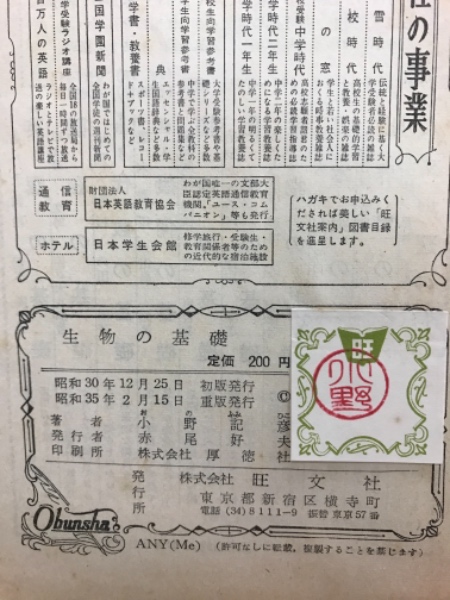 社の事業
雪時代
伝統と経験に基く大
学受験者必読の雑誌
校時代
高校生の基礎的学習
と教養・娯楽の雑誌
の窓
学生と若い社会人に
おくる時事教養雑誌
中学時代
高校志願者諸君のた
めの必読学習指導誌
中学時代二年生
中学二年の楽しくた
めになる学習教養誌
中学時代一年生
中学一年の明るくて
たのしい学習教養誌
校生向学習参考書
大学受験参考書や基
礎シリーズなど多数
学生向学習参考書
中学で学ぶ全教科の
参考書と問題集など
典
エッセンシャル・学
生国語辞典など多数
学書・教養書
スポーツ書、レコー
ドブックなど
国学園新聞
わが国ではじめての
全国学徒の週刊新聞
学受験ラジオ講座
全国18の放送局から
毎日一時間ずつ放送
百万人の英語
ラジオとテレビで放
送の楽しい英語講座
通信教育
財団法人
日本英語教育協会
わが国唯一の文部大
臣認定英語通信教育
機関。「ユース・コム
パニオン」等も発行
ホテル
日本学生会館
修学旅行・受験生・
教育関係者等のため
の近代的な宿泊施設
ハガキでお申込みく
だされば美しい「旺
文社案内」図書目録
を進呈します。
生物の基礎
定価 200円
昭和30年12月25日 初版発行
昭和35年2月15日 重版発行 ©
著者 小野記彦
発行者 赤尾好夫
印刷所 株式会社 厚徳社
発行所 株式会社 旺文社
東京都新宿区横寺町
電話 (34) 8111-9 振替東京57番
旺
小野
Obunsha
ANY(Me) (許可なしに転載、複製することを禁じます)